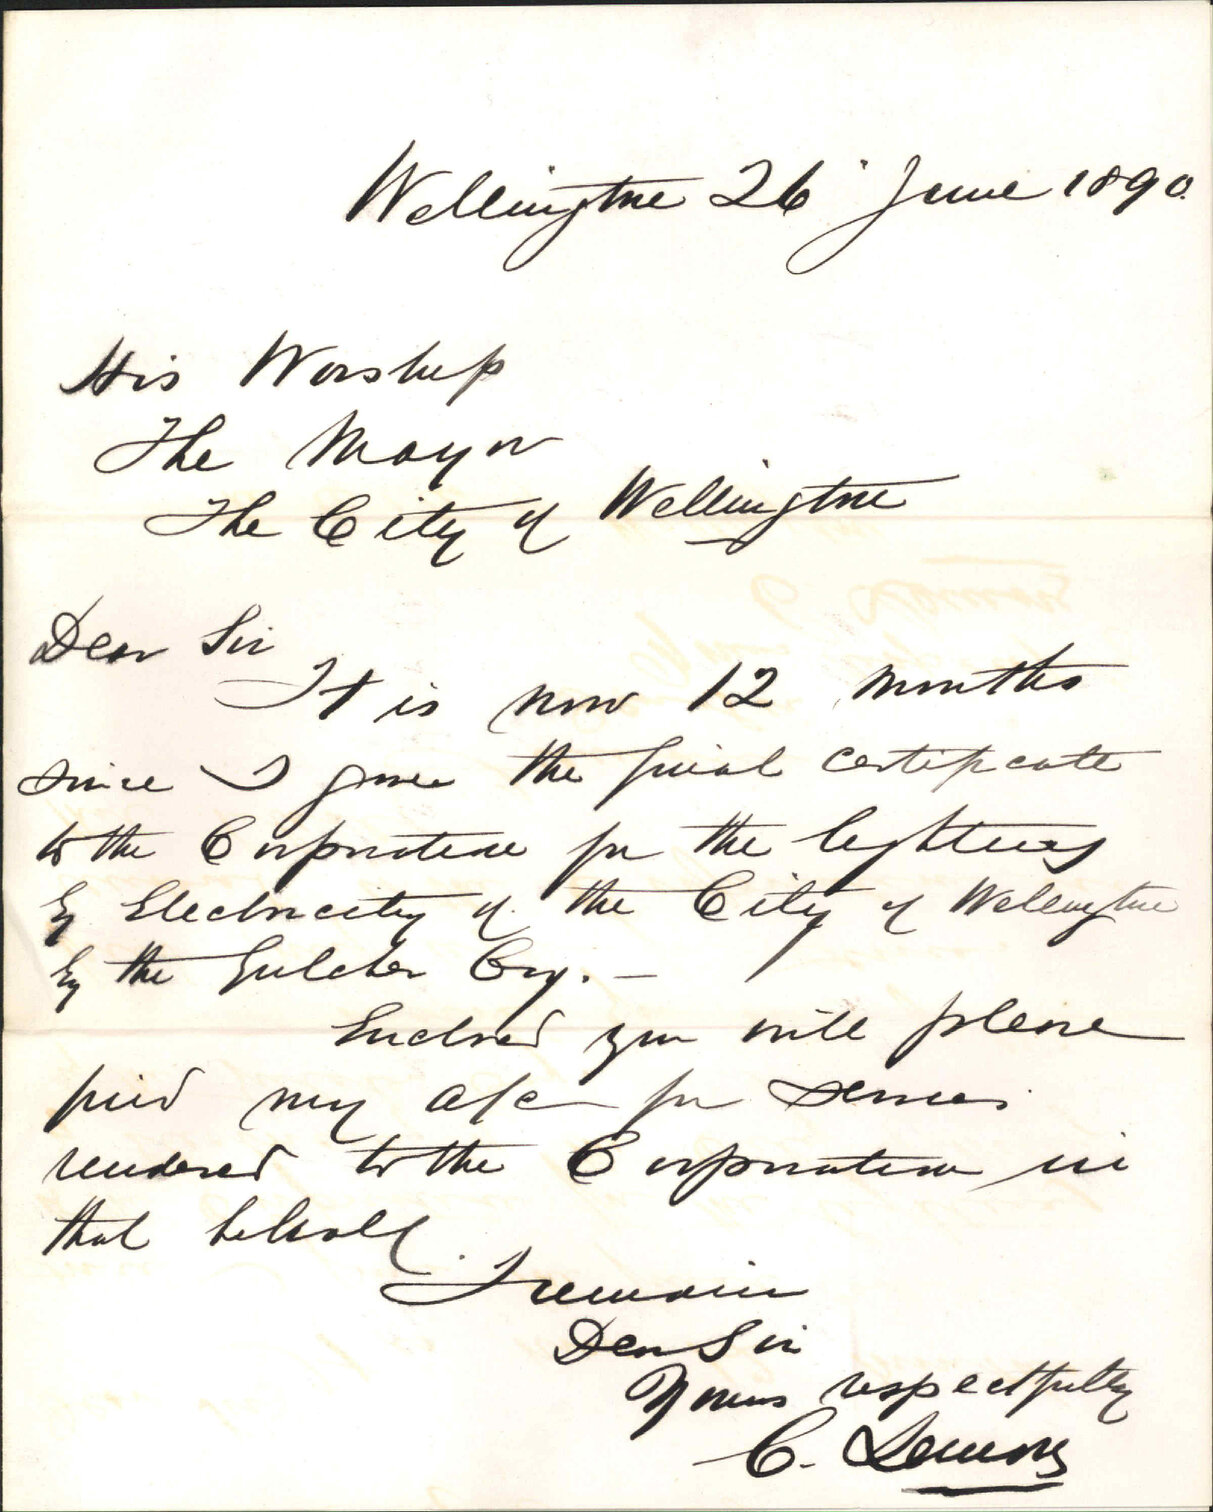 Wellington 26 June 1890.
His Worship
The Mayor
The City of Wellington
Dear Sir
It is now 12 months
since I gave the final certificate
to the Corporation for the lighting
by Electricity of the City of Wellington
by the Gulcher Coy. —
Enclosed you will please
find my a/c for services
rendered to the Corporation in
that behalf.
I remain
Dear Sir
Yours respectfully
C. Lemon